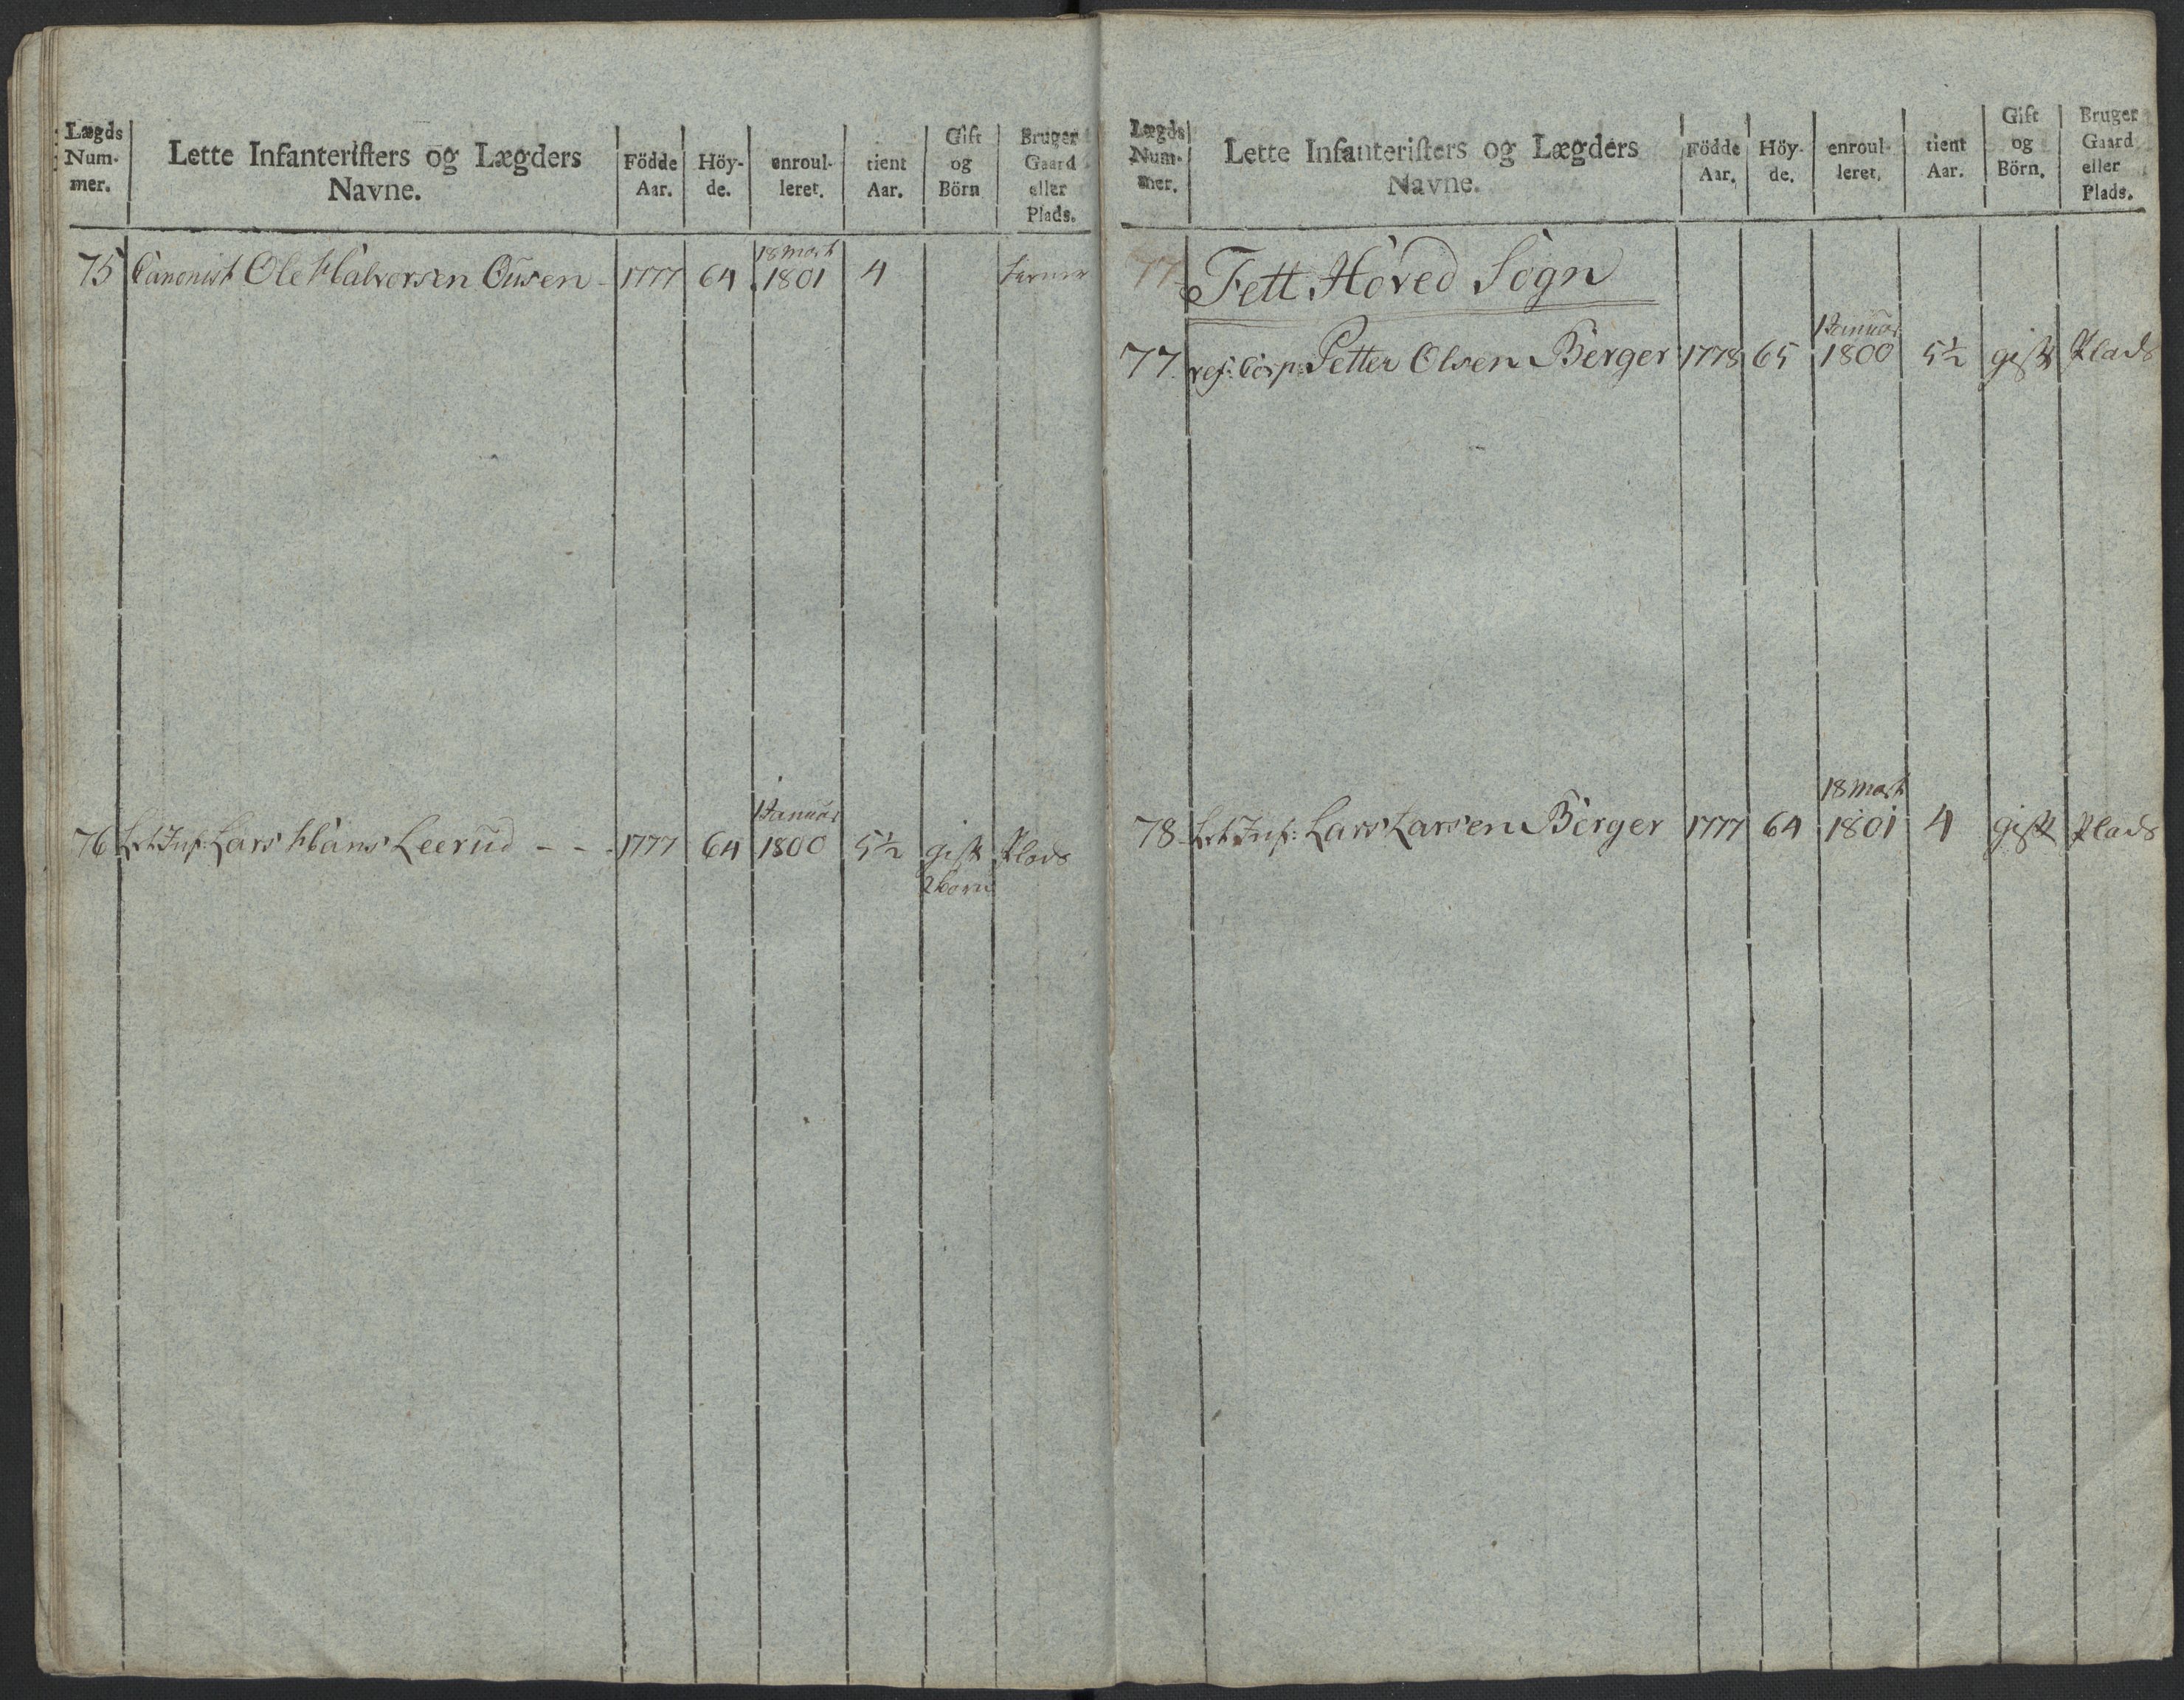 Lægds Num-mer. | Lette Infanterifters og Lægders Navne. | Födde Aar. | Höy-de. | enroul-leret. | tient Aar. | Gift og Börn | Bruger Gaard eller Plads.
18 Mart
75 Canonist Ole Halvorsen 1777 64 1801 4
1 Januar
76 Let Inf: Lars Hans Leerud - - - 1777 64 1800 5½ gift Plads
2 børn
Lægds Num-mer. | Lette Infanterifters og Lægders Navne. | Födde Aar. | Höy-de. | enroul-leret. | tient Aar. | Gift og Börn. | Bruger Gaard eller Plads.
77 Fett Hoved Sogn
1 Januar
77. ref: Corp: Petter Olsen Berger 1778 65 1800 5½ gift Plads
18 Mart
78 Let Inf: Lars Larsen Berger 1777 64 1801 4 gift Plads